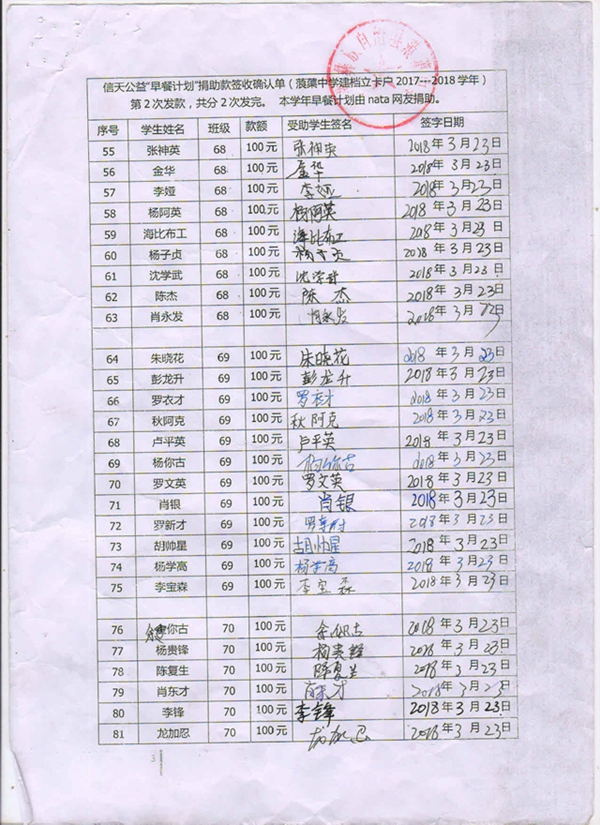 自治县
信天公益"早餐计划"捐助款签收确认单（蒗蕖中学建档立卡户2017---2018学年）
第2次发款，共分2次发完。 本学年早餐计划由nata网友捐助。
序号 学生姓名 班级 款额 受助学生签名 签字日期
55 张神英 68 100元 张神英 2018年3月23日
56 金华 68 100元 金华 2018年3月23日
57 李娅 68 100元 李娅 2018年3月23日
58 杨阿英 68 100元 杨阿英 2018年3月23日
59 海比布工 68 100元 海比布工 2018年3月23日
60 杨子贞 68 100元 杨子贞 2018年3月23日
61 沈学武 68 100元 沈学武 2018年3月23日
62 陈杰 68 100元 陈杰 2018年3月23日
63 肖永发 68 100元 肖永发 2018年3月23日
64 朱晓花 69 100元 朱晓花 2018年3月23日
65 彭龙升 69 100元 彭龙升 2018年3月23日
66 罗衣才 69 100元 罗衣才 2018年3月23日
67 秋阿克 69 100元 秋阿克 2018年3月23日
68 卢平英 69 100元 卢平英 2018年3月23日
69 杨你古 69 100元 杨你古 2018年3月23日
70 罗文英 69 100元 罗文英 2018年3月23日
71 肖银 69 100元 肖银 2018年3月23日
72 罗新才 69 100元 2018年3月23日
73 胡帅星 69 100元 胡帅星 2018年3月23日
74 杨学高 69 100元 杨学高 2018年3月23日
75 李宝森 69 100元 李宝森 2018年3月23日
76 你古 70 100元 余你古 2018年3月23日
77 杨贵锋 70 100元 杨贵锋 2018年3月23日
78 陈复生 70 100元 陈复生 2018年3月23日
79 肖东才 70 100元 肖东才 2018年3月23日
80 李锋 70 100元 李锋 2018年3月23日
81 龙加忍 70 100元 2018年3月23日
3